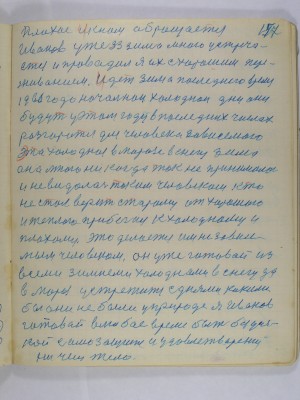 157
Плохое с ним обращается
Иванов уже 33 зима много встреча-
ет и провадил я их с хорошим пере-
живанием. Идет зима последнего время
1966 года начались холодные дни они
будут у этом году в последних числах
разгорится для человека зависимого
Эта холодная в морозе в снегу зима
она много никогда так не принималась
и не видалась таким человеком кто
не стал верить старому от хорошего
и теплого прибегну к холодному и
плохому это делается им независи-
мым человеком, он уже готовый из
всеми зимними холодными в снегу да
в мороз устретить с днями какими
бы они не были у природе я Иванов
готовый в любое время быть будил-
кой самозащиты и удовлетворени-
ем чем тело.